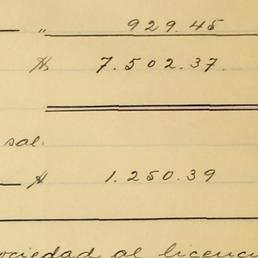 " 929.45
$ 7.502.37
sal.
$ 1.250.39
sociedad al licenci